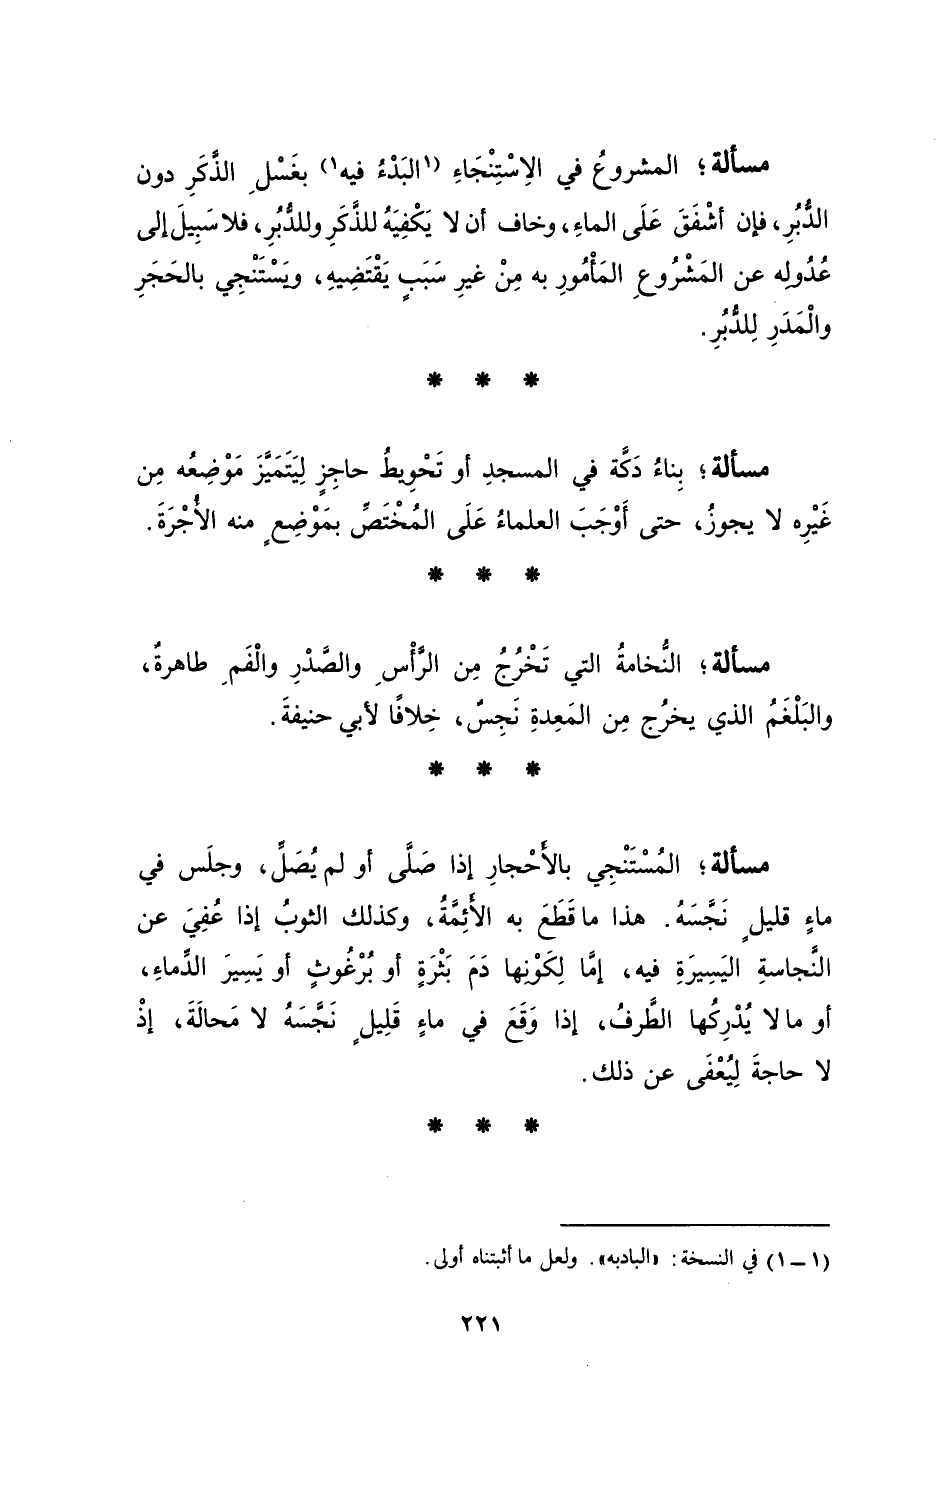 مسألة؛ المشروعُ في الاِسْتِنْجَاءِ (١البَدْءُ فيه١) بغَسْلِ الذَّكَرِ دون
الدُّبُرِ، فإن أشْفَقَ عَلَى الماءِ، وخاف أن لا يَكْفِيَهُ للذَّكَرِ وللدُّبُرِ، فلا سَبِيلَ إلى
عُدُولِه عن المَشْرُوعِ المَأْمُورِ به مِنْ غيرِ سَبَبٍ يَقْتَضِيهِ، ويَسْتَنْجِي بالحَجَرِ
والْمَدَرِ لِلدُّبُرِ.
* * *
مسألة؛ بِناءُ دَكَّة في المسجدِ أو تَحْوِيطُ حاجزٍ لِيَتَمَيَّزَ مَوْضِعُه مِن
غَيْرِه لا يجوزُ، حتى أَوْجَبَ العلماءُ عَلَى المُخْتَصِّ بمَوْضِعٍ منه الأُجْرَةَ.
* * *
مسألة؛ النُّخامةُ التي تَخْرُجُ مِن الرَّأْسِ والصَّدْرِ والْفَمِ طاهرةٌ،
والبَلْغَمُ الذي يخرُج مِن المَعِدةِ نَجِسٌ، خِلافًا لأبي حنيفةَ.
* * *
مسألة؛ المُسْتَنْجِي بالأَحْجارِ إذا صَلَّى أو لم يُصَلِّ، وجلَس في
ماءٍ قليلٍ نَجَّسَهُ. هذا ما قَطَعَ به الأَئِمَّةُ، وكذلك الثوبُ إذا عُفِيَ عن
النَّجاسةِ اليَسِيرَةِ فيه، إمَّا لِكَوْنِها دَمَ بَثْرَةٍ أو بُرْغُوثٍ أو يَسِيرَ الدِّماءِ،
أو ما لا يُدْرِكُها الطَّرفُ، إذا وَقَعَ في ماءٍ قَلِيلٍ نَجَّسَهُ لا مَحالَةَ، إذْ
لا حاجةَ لِيُعْفَى عن ذلك.
* * *
(١ – ١) في النسخة: «البادبه». ولعل ما أثبتناه أولى.
٢٢١